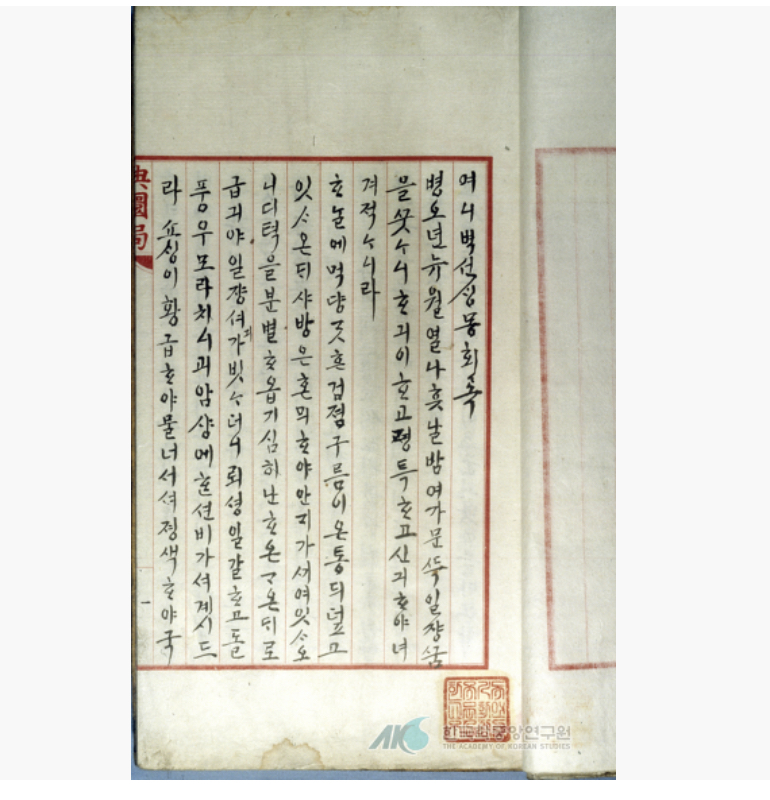 여니벽션ᄉᆡᆼ몽회록
병오년뉴월열나흣날밤여가문득일쟝ᄭᅮᆷ
을ᄭᅮᆺᄉᆞ니ᄒᆞ괴이ᄒᆞ고평특ᄒᆞ고신긔ᄒᆞ야녀
겨적ᄉᆞ니라
ᄒᆞᄂᆞᆯ에먹댱ᄀᆞᆺᄒᆞᆫ검졈구름이온통듸덥고
잇ᄉᆞ온ᄃᆡ샤방은혼믜ᄒᆞ야안ᄀᆡ가셔여잇ᄉᆞ오
니디텩을분별ᄒᆞ옵기심히난ᄒᆞ온ᄀᆞ온ᄃᆡ로
급긔야일쟝셔긔가빗ᄉᆞ더니뢰셩일갈ᄒᆞ고돌
풍우모라치니긔암샹에ᄒᆞᆫ션비가셔계시드
라쇼ᄉᆡᆼ이황급ᄒᆞ야물너서셔졍색ᄒᆞ야국
典圜局
AKS 한국학중앙연구원
THE ACADEMY OF KOREAN STUDIES